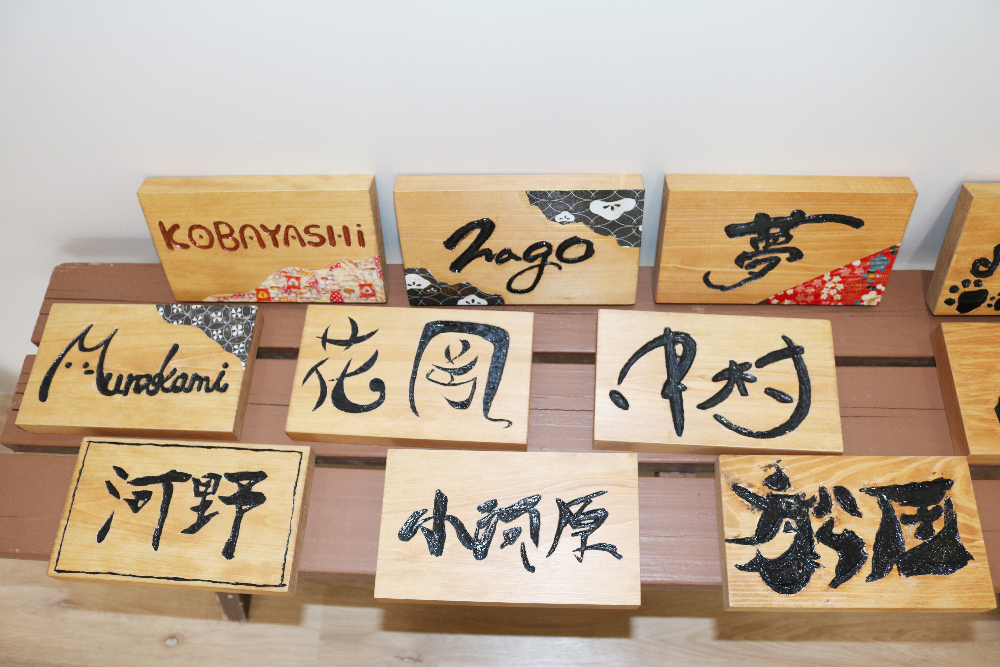 KOBAYASHi
nago
夢
Murakami
花岡
中村
河野
小河原